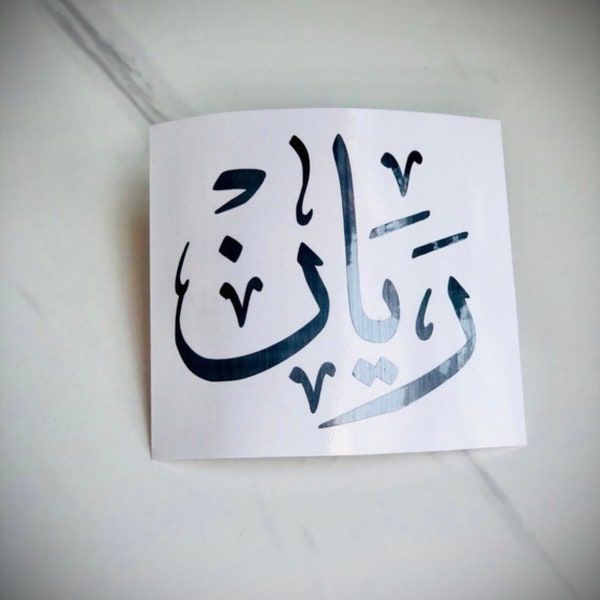 رَيَانْ